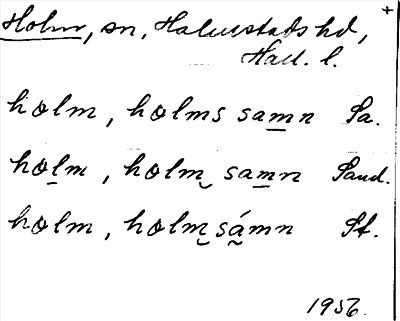 Holm, sn, Halmstads hd,
Hall. l.
hɷlm, hɷlms samn Sa.
hɷlm, hɷlm samn Sand.
hɷlm, hɷlm sámn St.
1956.